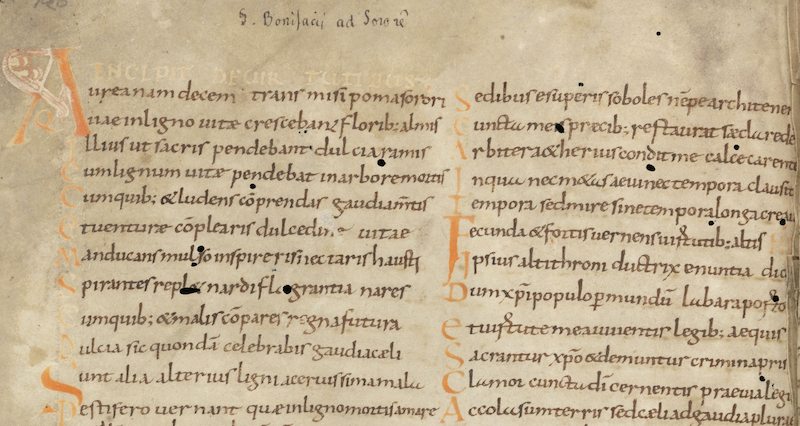 S. Bonifacii ad Sororē
INCIPIT DE VIRTUTIBUS
Aurea nam decem transmisi poma sorori
uae in ligno uitæ crescebant florib: almis
llius ut sacris pendebant dulcia ramis
um lignum uitæ pendebat in arbore mortis
umquib: & ludens cōprendas gaudia m̄tis
tuenturæ cōplearis dulcedine uitae
anducans mulso inspireris nectaris haustu
pirantes replæ nardi flagrantia nares
umquib: & malis cōpares regna futura
ulcia sic quondā celebrabis gaudia cæli
unt alia alterius ligni aceruissima mala
Pestifero uernant quæ in ligno mortis amare
Sedibus e superis soboles nēpe architenen
Cuncta meis precib: restaurat sæcla rede
Arbiter aetherius condit me calce carente
In qua nec metas aeui nec tempora clausit
Tempora sed mire sine tempora longa creau
Fecunda & fortis uernens uirtutib: altis
Ipsius altithroni ductrix enuntia di
Dum xp̄i populo per mundū labara porto
etuirtute mea uiuentis legib: aequis
Sacrantur xp̄o & demuntur crimina pris
Clamor cunctadi cernentis praeuia legi
Accola sum terris sed cæli ad gaudia plura